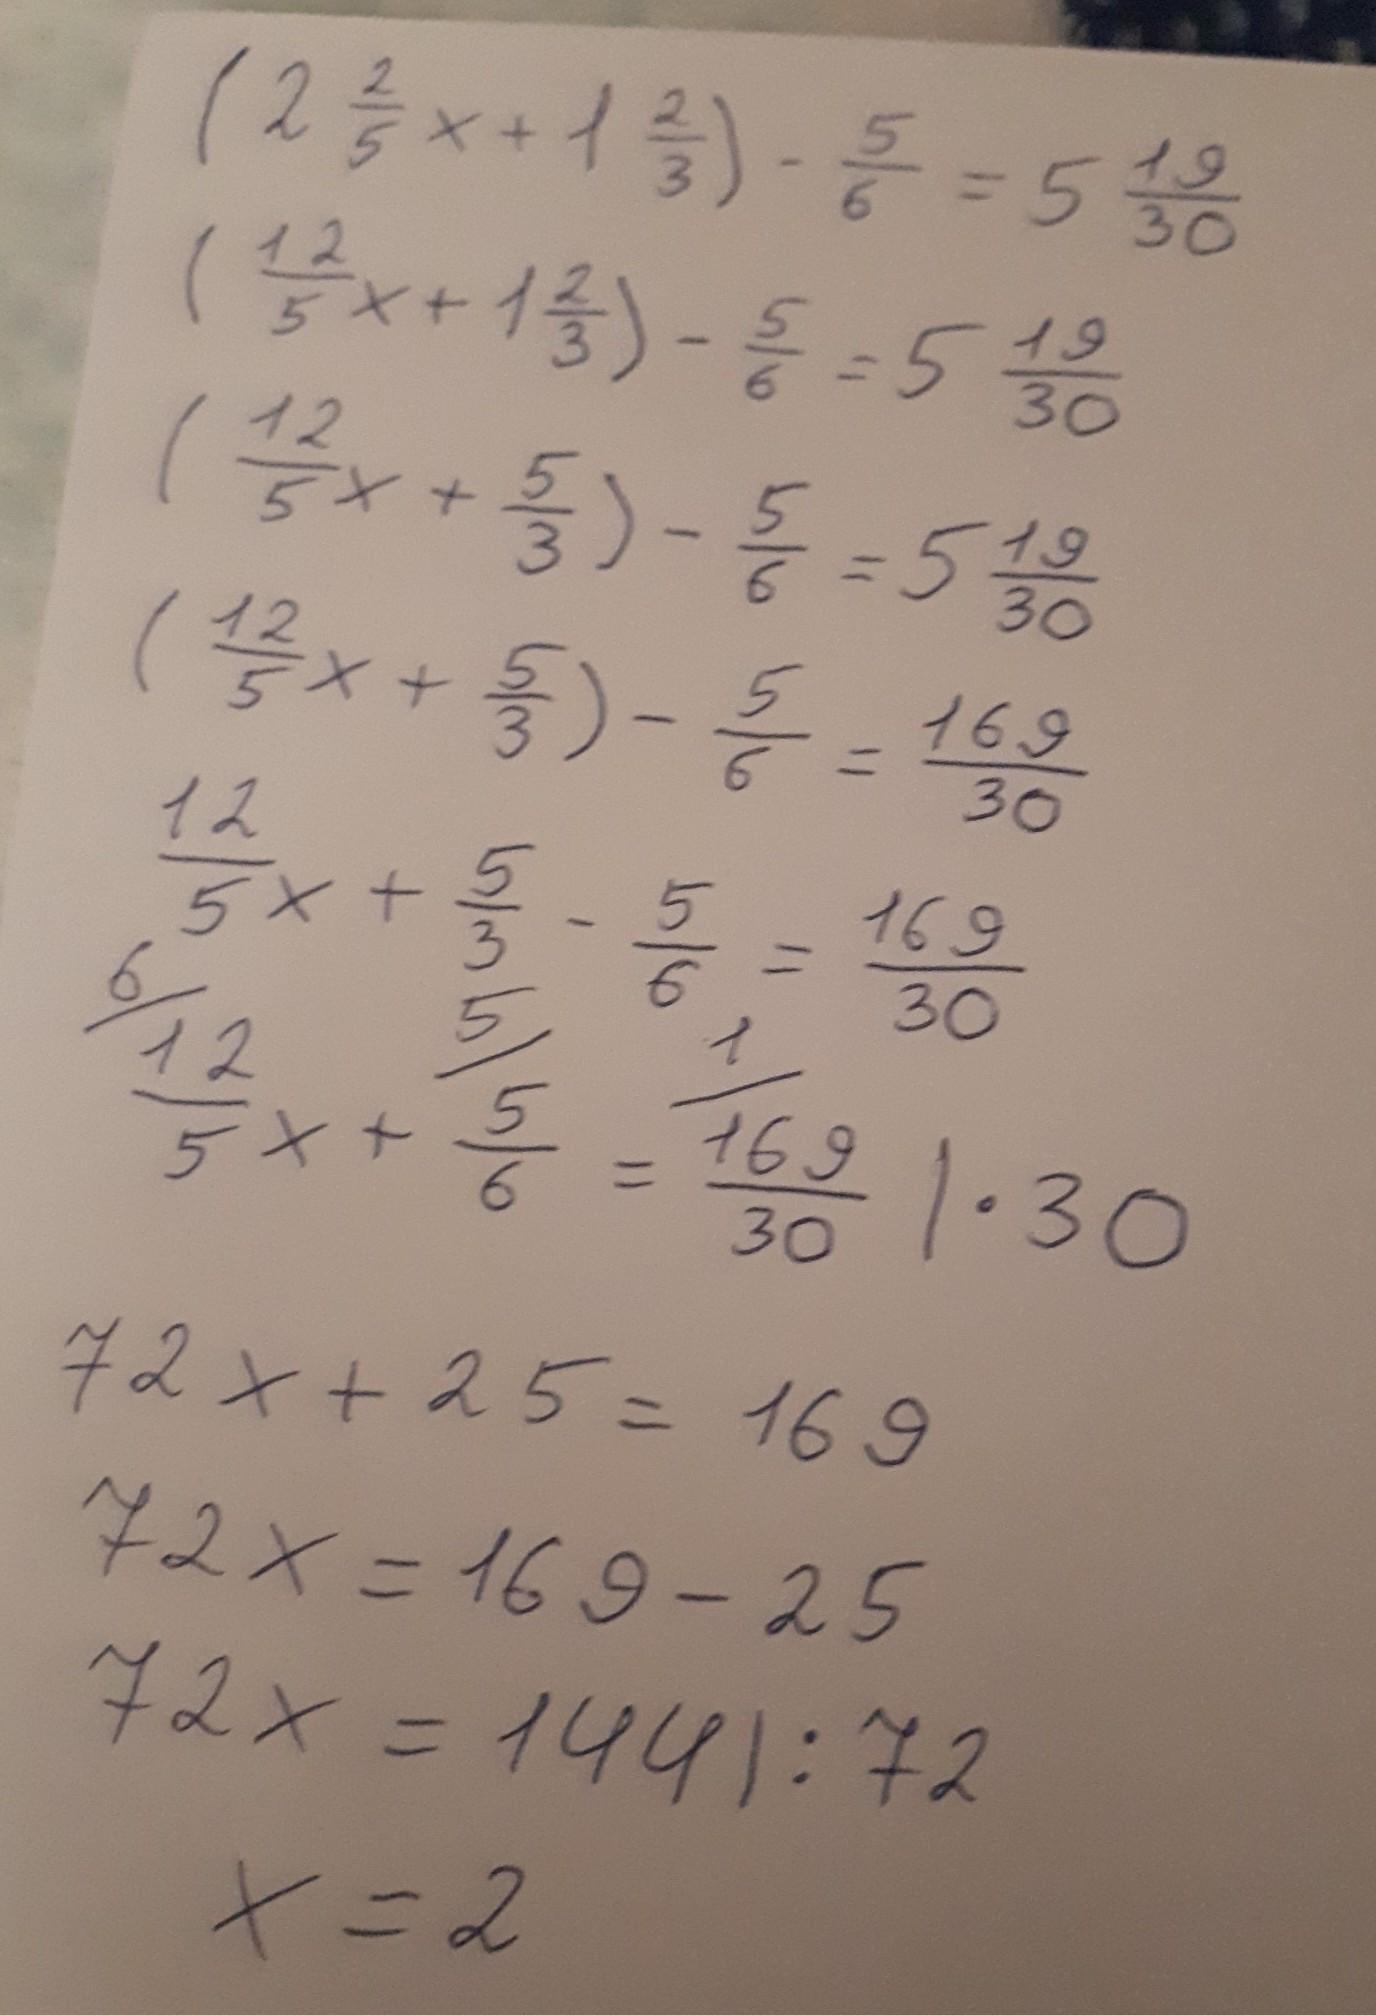 (2 2/5 x + 1 2/3) - 5/6 = 5 19/30
(12/5 x + 1 2/3) - 5/6 = 5 19/30
(12/5 x + 5/3) - 5/6 = 5 19/30
(12/5 x + 5/3) - 5/6 = 169/30
12/5 x + 5/3 - 5/6 = 169/30
6/ 5/ 1/
12/5 x + 5/6 = 169/30 | · 30
72x + 25 = 169
72x = 169 - 25
72x = 144 | : 72
x = 2